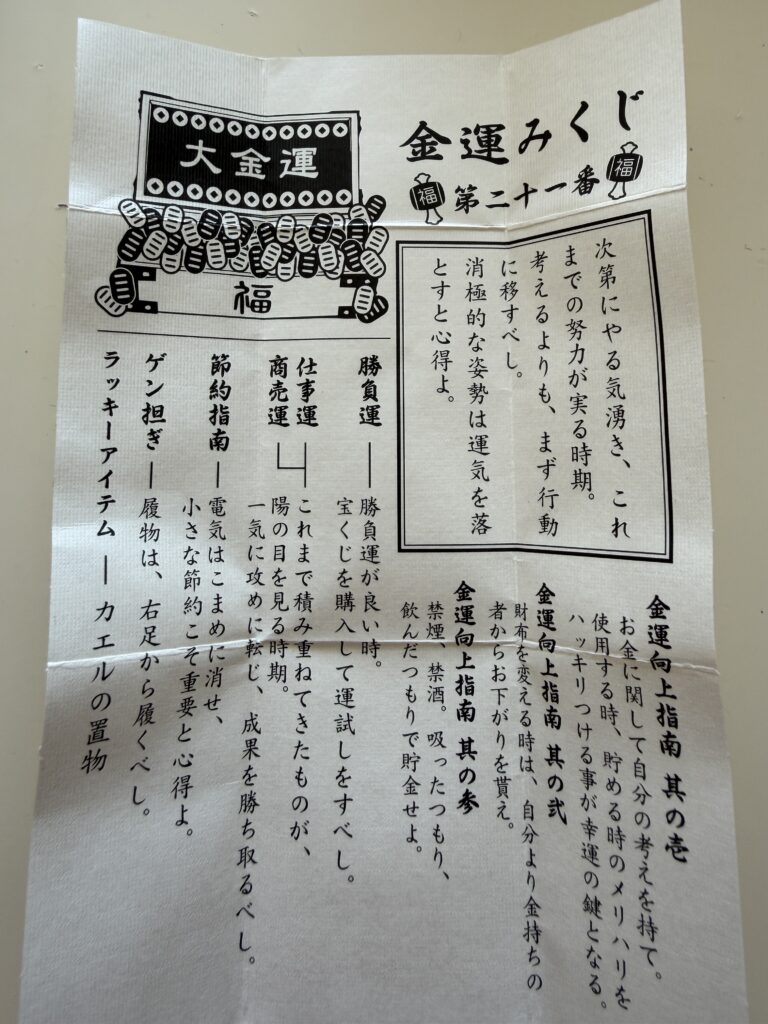 金運みくじ
福
第二十一番
福
次第にやる気湧き、これ
までの努力が実る時期。
考えるよりも、まず行動
に移すべし。
消極的な姿勢は運気を落
とすと心得よ。
金運向上指南 其の壱
お金に関して自分の考えを持て。
使用する時、貯める時のメリハリを
ハッキリつける事が幸運の鍵となる。
金運向上指南 其の弐
財布を変える時は、自分より金持ちの
者からお下がりを貰え。
金運向上指南 其の参
禁煙、禁酒。吸ったつもり、
飲んだつもりで貯金せよ。
大金運
福
勝負運 ― 勝負運が良い時。
宝くじを購入して運試しをすべし。
仕事運
商売運
これまで積み重ねてきたものが、
陽の目を見る時期。
一気に攻めに転じ、成果を勝ち取るべし。
節約指南 ― 電気はこまめに消せ、
小さな節約こそ重要と心得よ。
ゲン担ぎ ― 履物は、右足から履くべし。
ラッキーアイテム ― カエルの置物